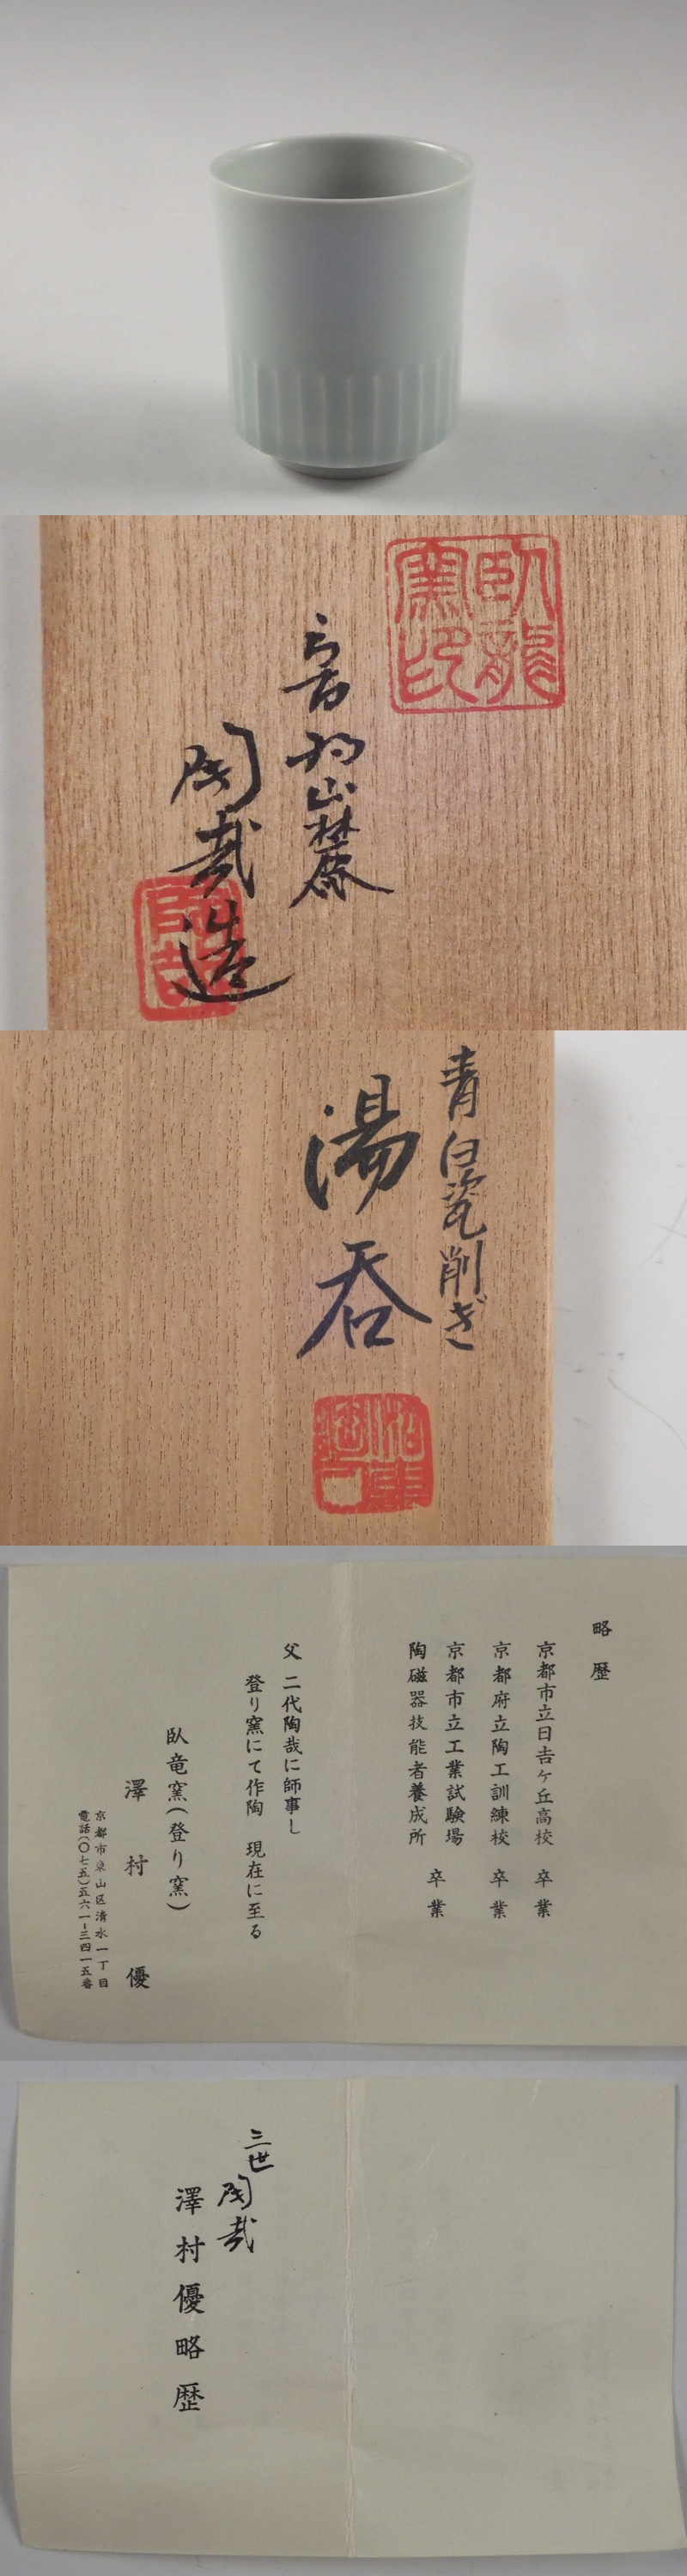 臥龍
窯印
音羽山麓
陶哉造
青白瓷削ぎ
湯呑
略歴
京都市立日吉ケ丘高校 卒業
京都府立陶工訓練校 卒業
京都市立工業試験場
陶磁器技能者養成所 卒業
父 二代陶哉に師事し
登り窯にて作陶 現在に至る
臥竜窯(登り窯)
澤村 優
京都市東山区清水一丁目
電話(〇七五)五六一-三四一五番
三世
陶哉
澤村優略歴